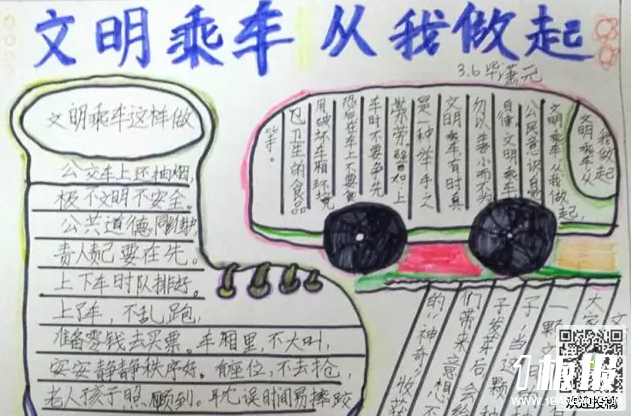 文明乘车 从我做起
3.6 毕潇元
文明乘车这样做
公交车上还抽烟,
极不文明不安全。
公共道德同维护,
责人责己要在先。
上下车时队排好。
上了车,不乱跑,
准备零钱去买票。车厢里,不大叫,
安安静静秩序好。有座位,不去抢,
老人孩子照顾到。
我做起
文明乘车从
文明乘车
从我做起,
公民意识自觉
自律,文明乘车
勿以善小而不为
文明乘车有时真
是种举手之
劳,譬如:上
车时不要争先
恐后在车上不要食
用破坏车厢环境
卫生的食品
等。
文
大家
一颗
子,当这颗
子发芽后会
们带来意想
的“神奇”收获